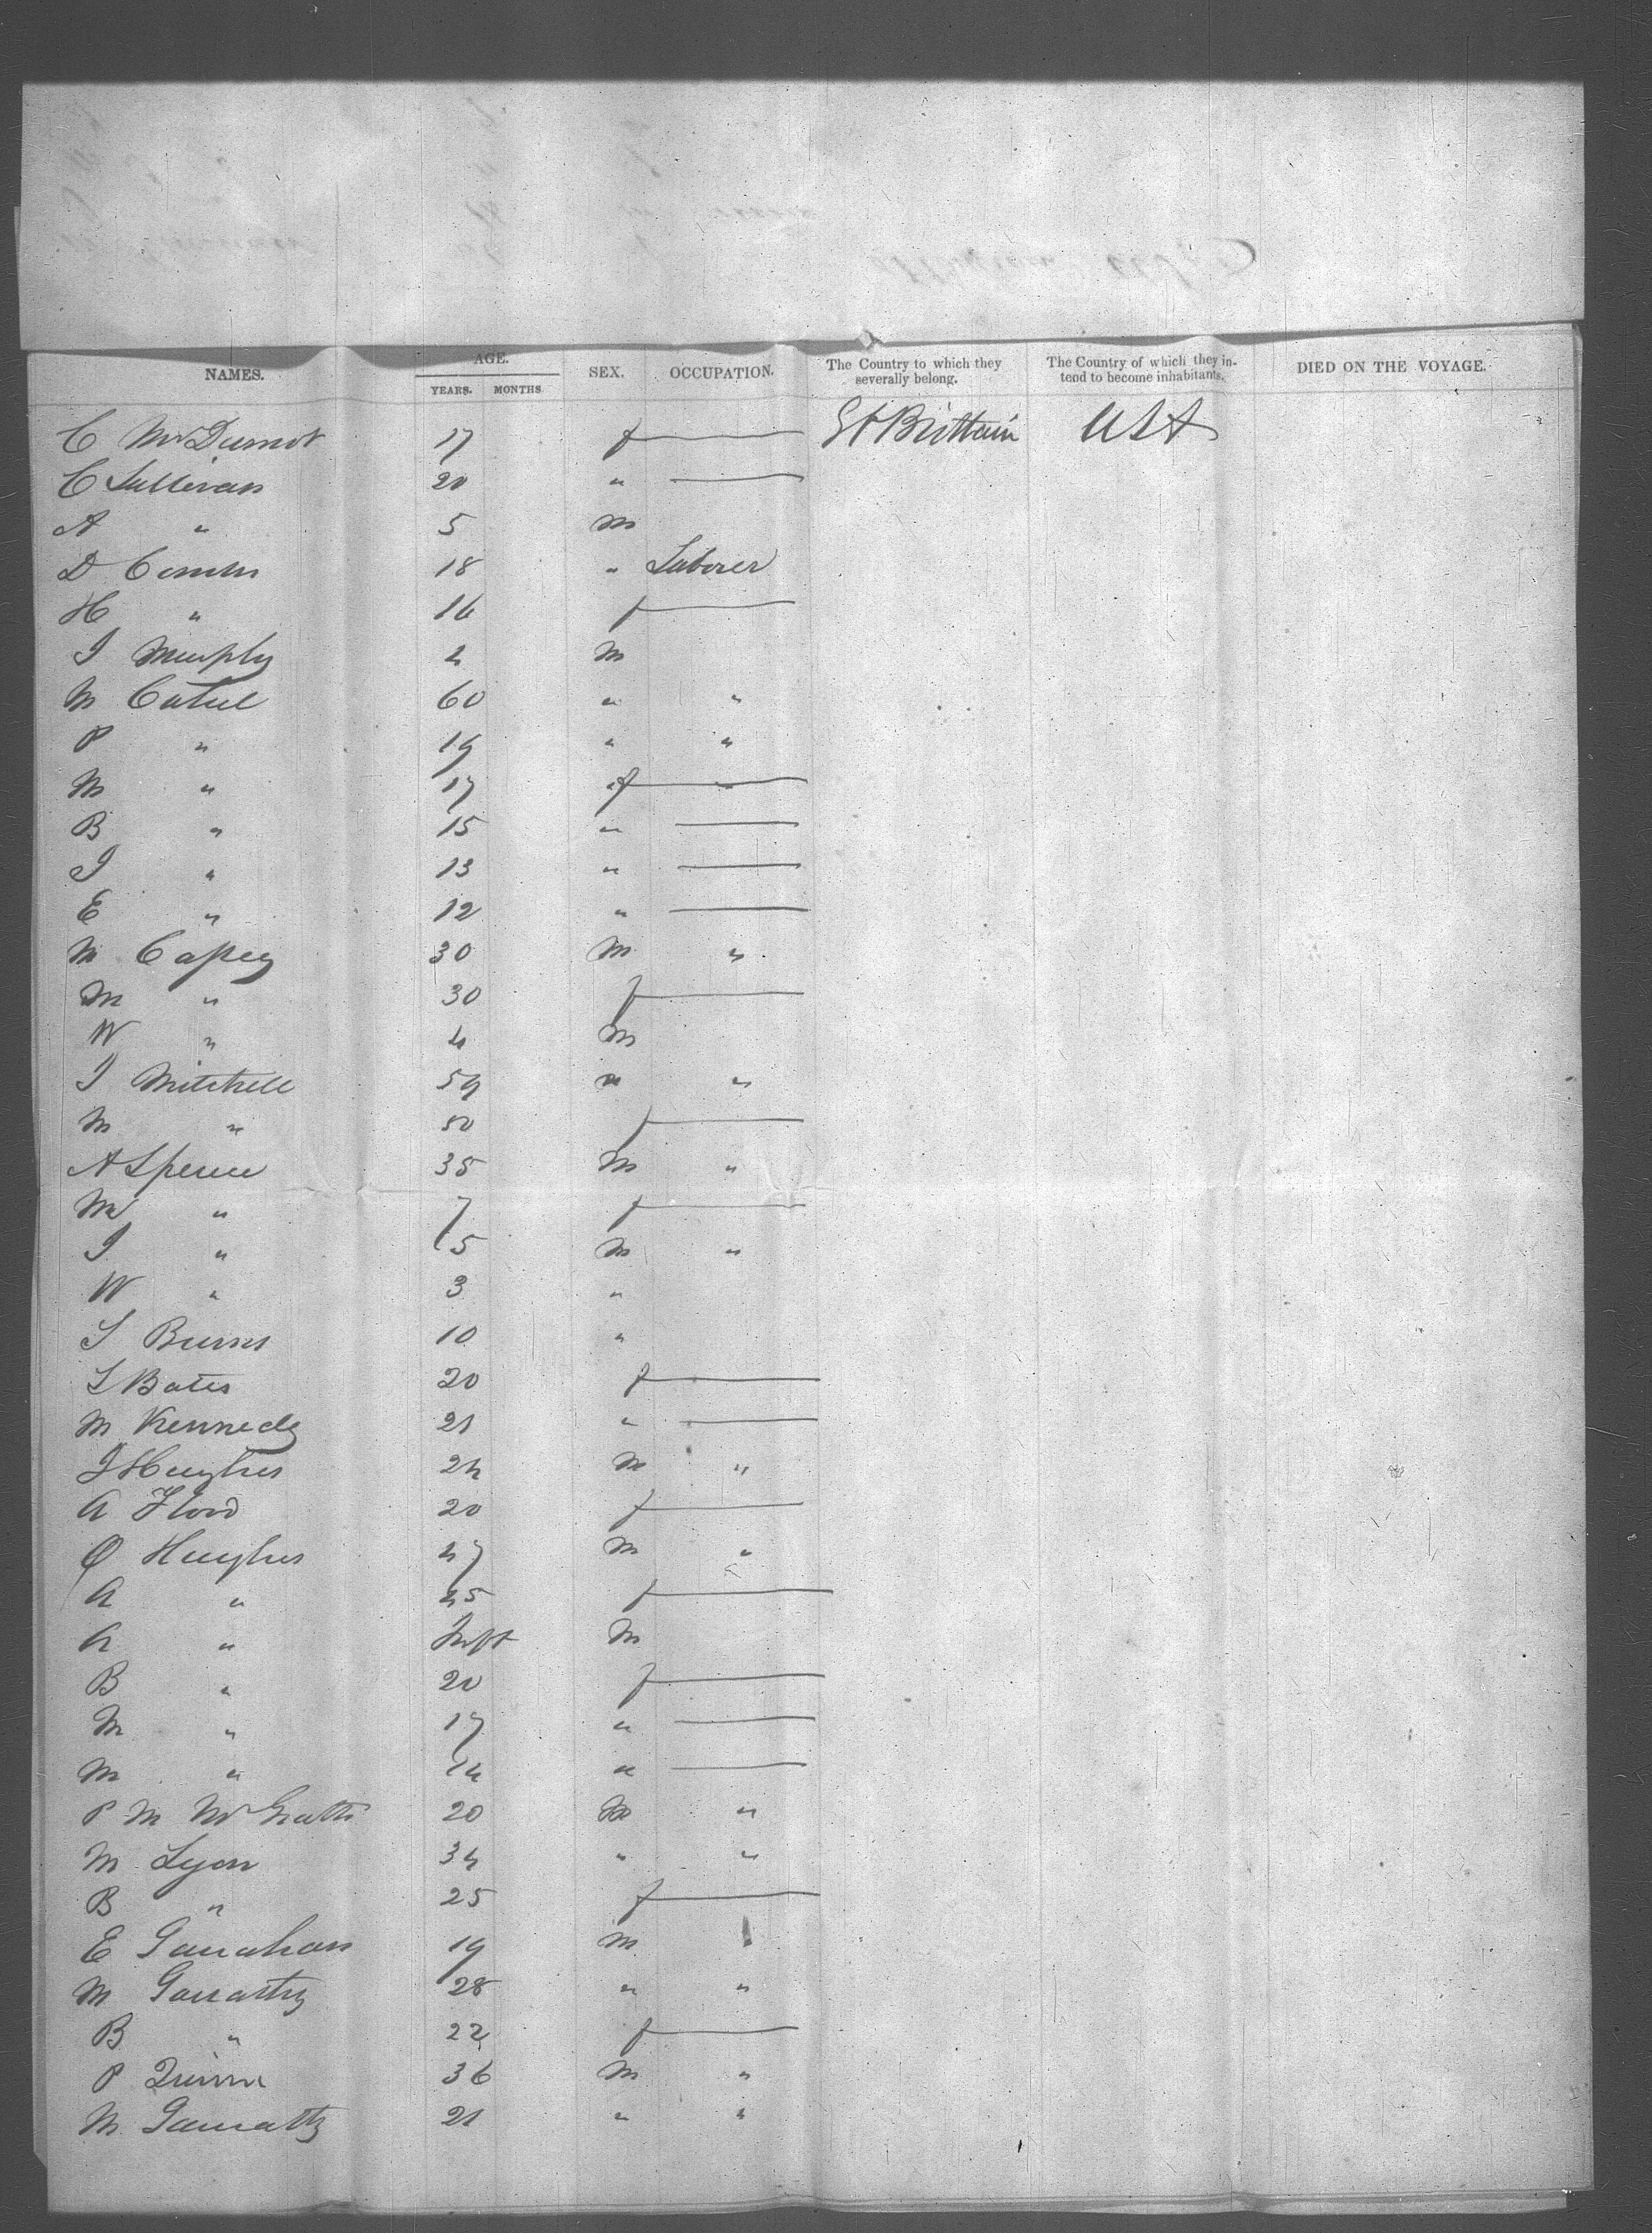 NAMES. AGE. YEARS. MONTHS SEX. OCCUPATION. The Country to which they severally belong. The Country of which they intend to become inhabitants. DIED ON THE VOYAGE.
C McDermot 17 f — Gt Brittain USA
C Sullivan 20 " —
A " 5 M
D 18 " Laborer
H " 16 f —
J Murphy 2 M
M Cahill 60 " "
P " 19 " "
M " 17 f —
B " 15 " —
J " 13 " —
E " 12 " —
M Casey 30 M "
M " 30 f —
W " 4 M
J Mitchell 59 " "
M " 50 f —
A Spence 35 M "
M " 7 f —
J " 5 M "
W " 3 "
S Burns 10 "
S Bates 20 f —
M Kennedy 21 " —
J Hughes 24 M "
A Flood 20 f —
O Hughes 27 M "
A " 25 f —
A " Inft M
B " 20 f —
M " 17 " —
M " 14 " —
P M McGrath 20 M "
M Lyon 34 " "
B " 25 f —
E Ganahan 19 M "
M Garratty 28 " "
B " 22 f —
P Quinn 36 M "
M Garratty 21 " "